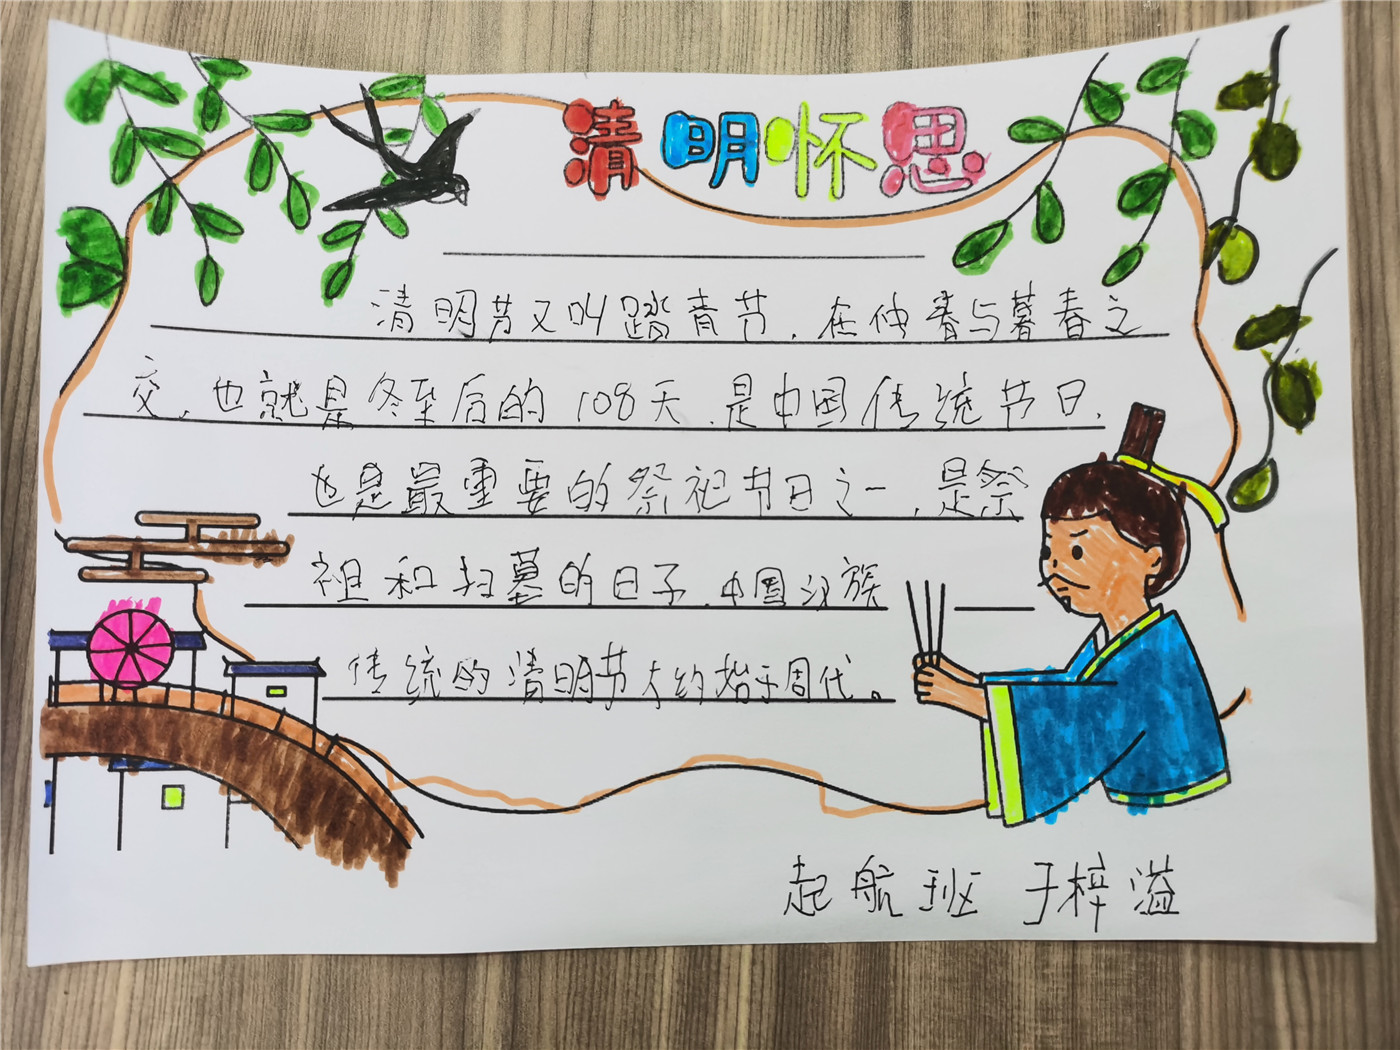 清明怀思
清明节又叫踏青节，在仲春与暮春之
交，也就是冬至后的108天，是中国传统节日，
也是最重要的祭祀节日之一，是祭
祖和扫墓的日子，中国汉族
传统的清明节大约始于周代。
起航班 于梓溢